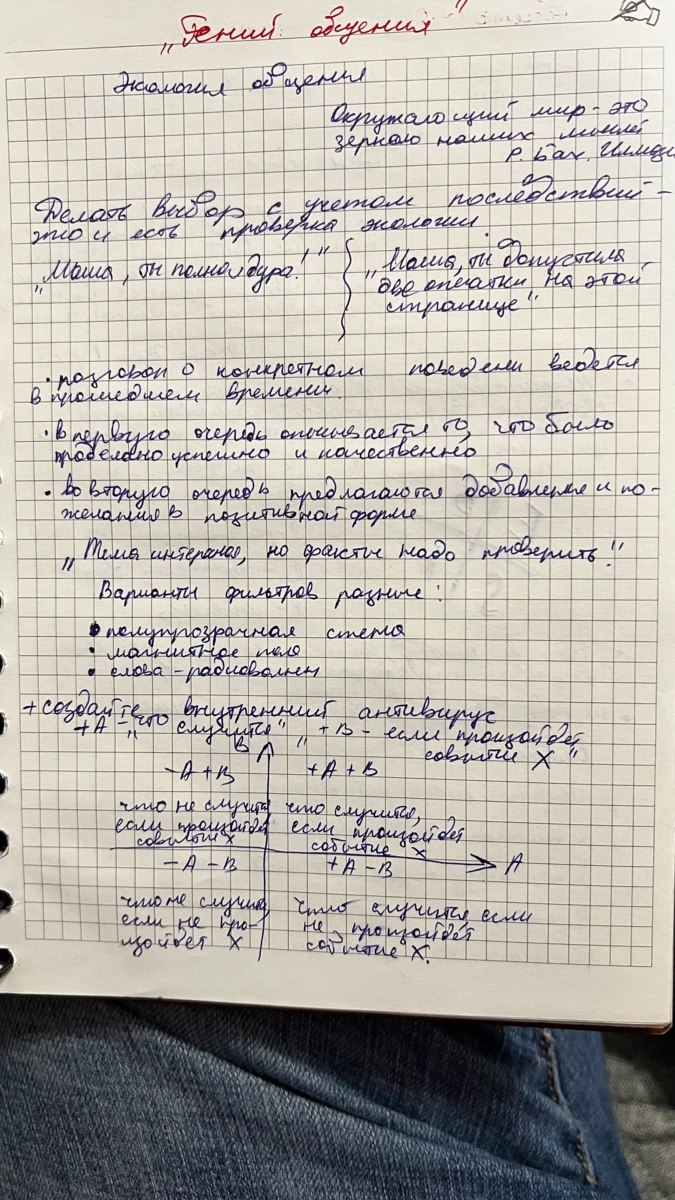 "Гений общения"
Экология общения
Окружающий мир - это
зеркало наших мыслей
Р. Бах.
Делать выбор с учетом последствий -
это и есть проверка экологии.
"Маша, ты полная дура!"
"Маша, ты допустила
две опечатки на этой
странице"
• разговор о конкретном поведени ведется
в прошедшем времени.
• в первую очередь описывается то, что было
проделано успешно и качественно
• во вторую очередь предлагаются добавления и по-
желания в позитивной форме
"Тема интересная, но факты надо проверить!"
Варианты фильтров разные:
• полупрозрачная стена
• магнитное поле
• слова - радиоволны
+ создайте внутренний антивирус
+А - "что случится" "+В - если произойдет
событие Х"
В
-А+В
+А+В
что не случится
если произойдет
событие Х
что случится,
если произойдет
событие Х
А
-А-В
+А-В
что не случится,
если не про-
изойдет Х
что случится, если
не произойдет
событие Х.